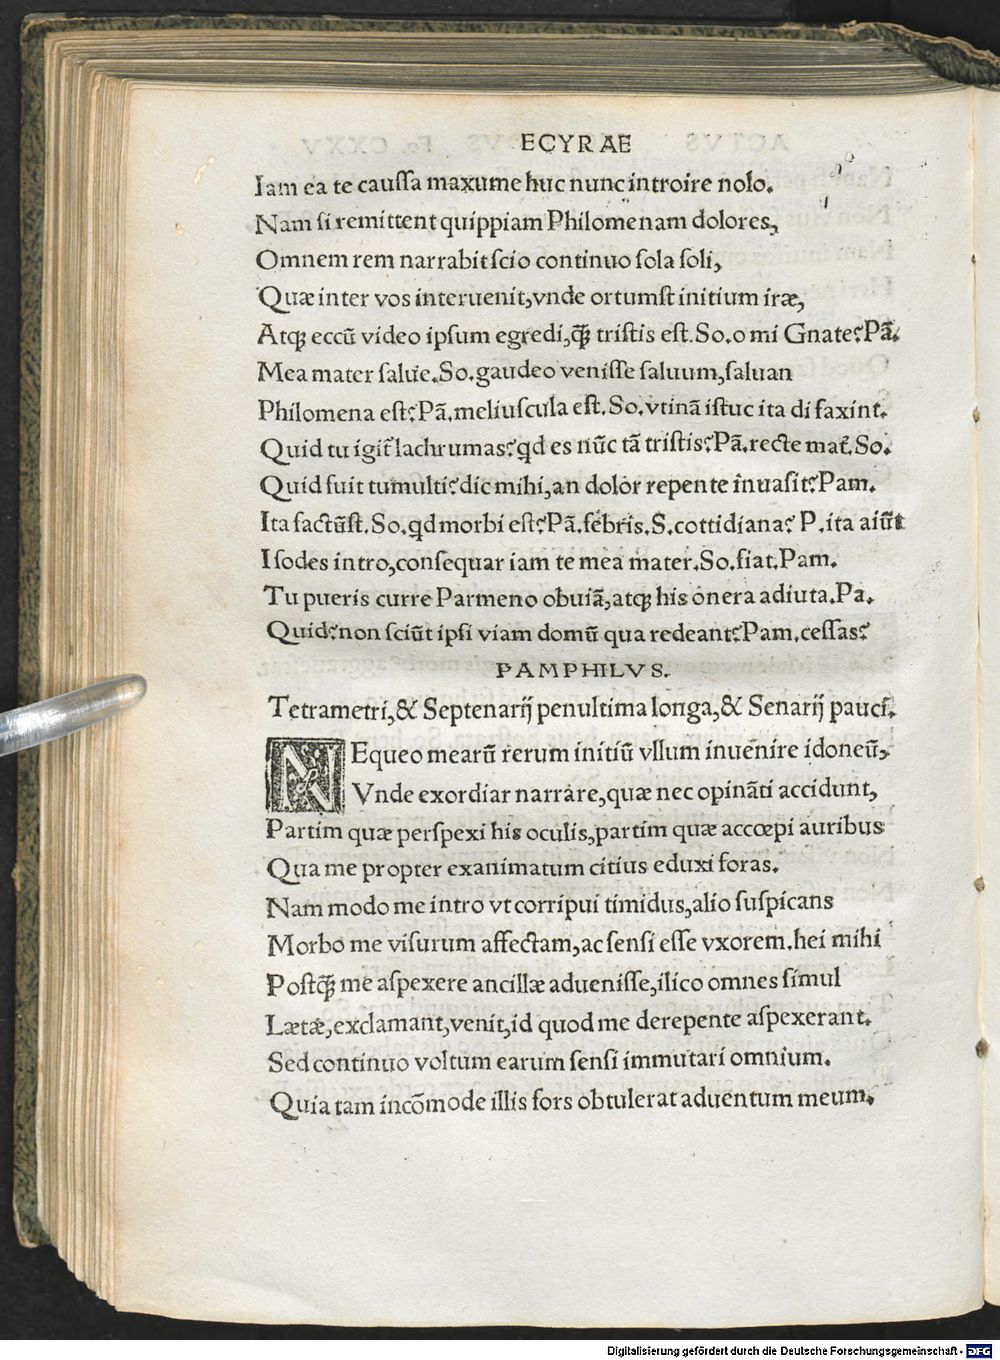 ECYRAE
Iam ea te cauſſa maxume huc nunc introire nolo.
Nam ſi remittent quippiam Philomenam dolores,
Omnem rem narrabit ſcio continuo ſola ſoli,
Quæ inter vos interuenit, vnde ortumſt initium iræ,
Atqꝫ eccū video ipſum egredi, q̄ꝫ triſtis eſt. So. o mi Gnate? Pā.
Mea mater ſalue. So. gaudeo veniſſe ſaluum, ſaluan
Philomena eſt? Pā. meliuſcula eſt. So. vtinā iſtuc ita di faxint.
Quid tu igit̃ lachrumas? qd es nūc tā triſtis? Pā. recte mat̃. So.
Quid fuit tumulti? dic mihi, an dolor repente inuaſit? Pam.
Ita factūſt. So. qd morbi eſt? Pā. febris. S. cottidiana? P. ita aiūt
I ſodes intro, conſequar iam te mea mater. So. fiat. Pam.
Tu pueris curre Parmeno obuiā, atqꝫ his onera adiuta. Pa.
Quid? non ſciūt ipſi viam domū qua redeant? Pam. ceſſas?
PAMPHILVS.
Tetrametri, & Septenarij penultima longa, & Senarij pauci.
NEqueo mearū rerum initiū vllum inuenire idoneū,
Vnde exordiar narrare, quæ nec opināti accidunt,
Partim quæ perſpexi his oculis, partim quæ accœpi auribus
Qua me propter exanimatum citius eduxi foras.
Nam modo me intro vt corripui timidus, alio ſuſpicans
Morbo me viſurum affectam, ac ſenſi eſſe vxorem. hei mihi
Poſtq̄ꝫ me aſpexere ancillæ adueniſſe, ilico omnes ſimul
Lætæ, exclamant, venit, id quod me derepente aſpexerant.
Sed continuo voltum earum ſenſi immutari omnium.
Quia tam incōmode illis fors obtulerat aduentum meum.
Digitalisierung gefördert durch die Deutsche Forschungsgemeinschaft - DFG